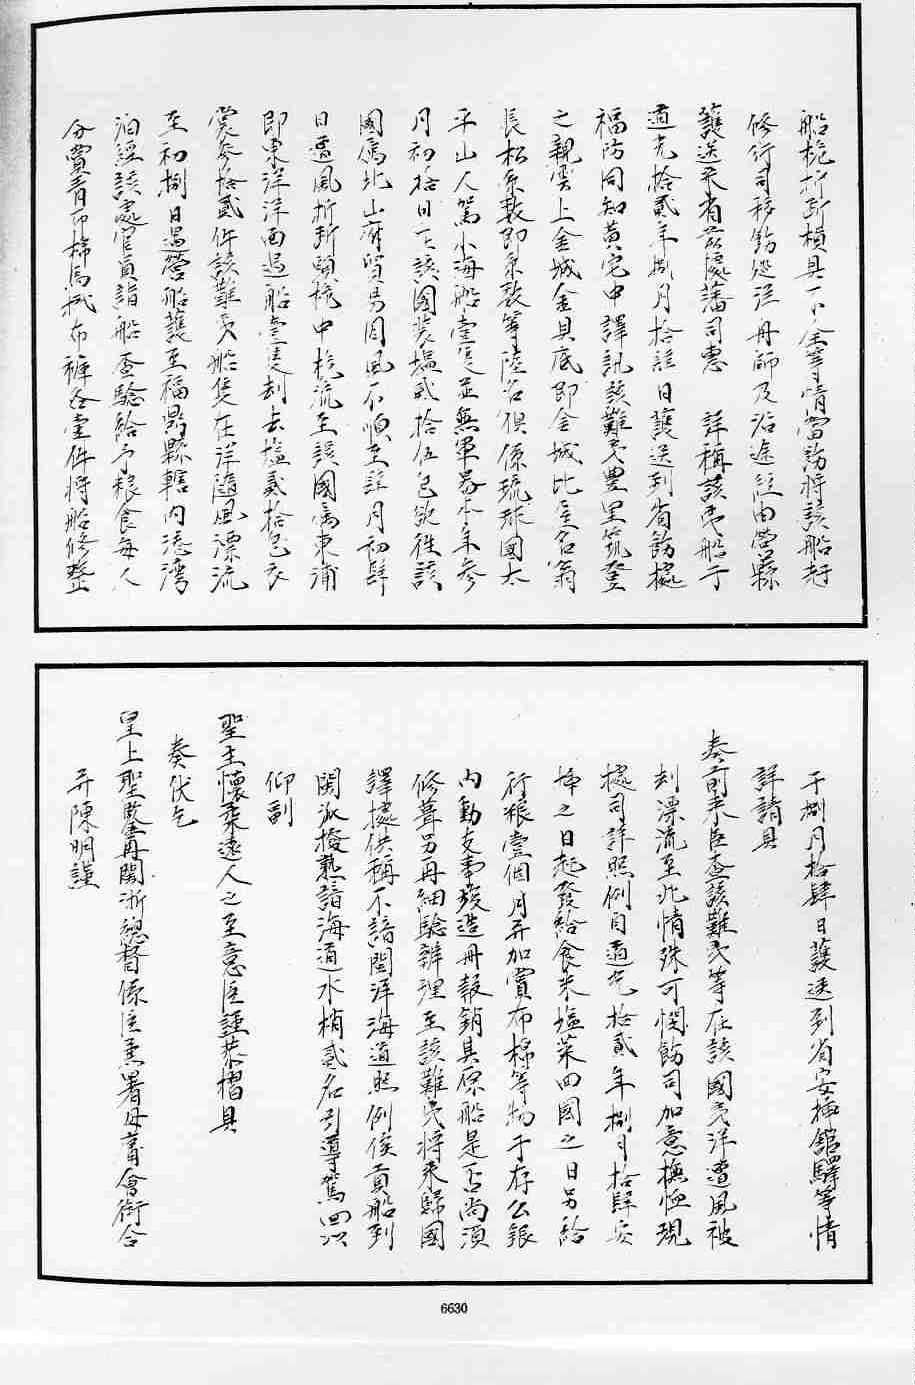 船桅折斷槓具不全等情當飭將該船起
修行司移飭巡洋舟師及沿途經由營縣
護送來省茲據藩司惠　詳稱該夷船于
道光拾貳年捌月拾肆日護送到省飭據
福防同知黃宅中譯訊該難夷豐里筑登
之親雲上金城金具底即金城比屋名翁
長松原敷即原敷等陸名俱係琉球國太
平山人駕小海船壹隻並無軍器本年參
月初拾日在該國裝塩貳拾伍包欲往該
國屬北山府貿易因風不順至肆月初肆
日遭風折斷頭桅中桅漂流至該國屬東浦
即東洋洋面過船壹隻刦去塩貳拾包衣
裳參拾貳件該難夷船隻在洋隨風漂流
至初捌日遇營船護至福鼎縣轄內港灣
泊經該處官員詣船查驗給予粮食每人
分賞青布棉馬褂布褲各壹件將船修整
于捌月拾肆日護送到省安插館驛等情
詳請具
奏前來臣查該難夷等在該國夷洋遭風被
刦漂流至此情殊可憫飭司加意撫恤現
據司詳照例自道光拾貳年捌月拾肆安
插之日起發給食米塩菜回國之日另給
行粮壹個月并加賞布棉等物于存公銀
內動支事竣造冊報銷其原船是否尚須
修葺另再細驗辦理至該難夷將來歸國
譯據供稱不諳閩洋海道照例俟貢船到
閩派撥熟諳海道水梢貳名引導駕回以
仰副
聖主懷柔遠人之至意臣謹恭摺具
奏伏乞
皇上聖鑒再閩浙總督係臣兼署毋庸會銜合
并陳明謹
6630